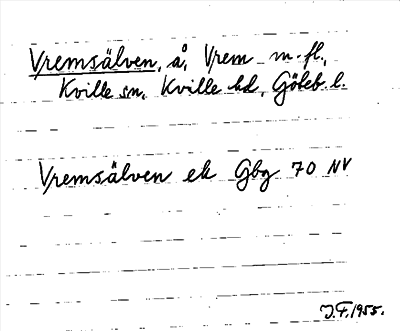 Vremsälven, å, Vrem m.fl.,
Kville sn, Kville hd, Göteb. l.
Vremsälven ek Gbg 70 NV
J.F. 1955.